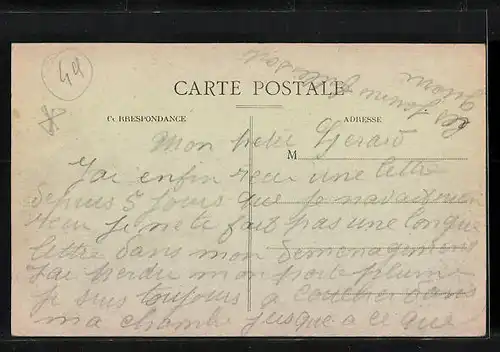 49
CARTE POSTALE
CORRESPONDANCE
ADRESSE
M
Mon petit Gerard
J'ai enfin recu une lettre
depuis 5 jours que je navait rien
recu je me te fait pas une longue
lettre dans mon demenagement
J'ai perdu mon porte plume
je suis toujours a coucher dans
ma chambre jusque a ce que